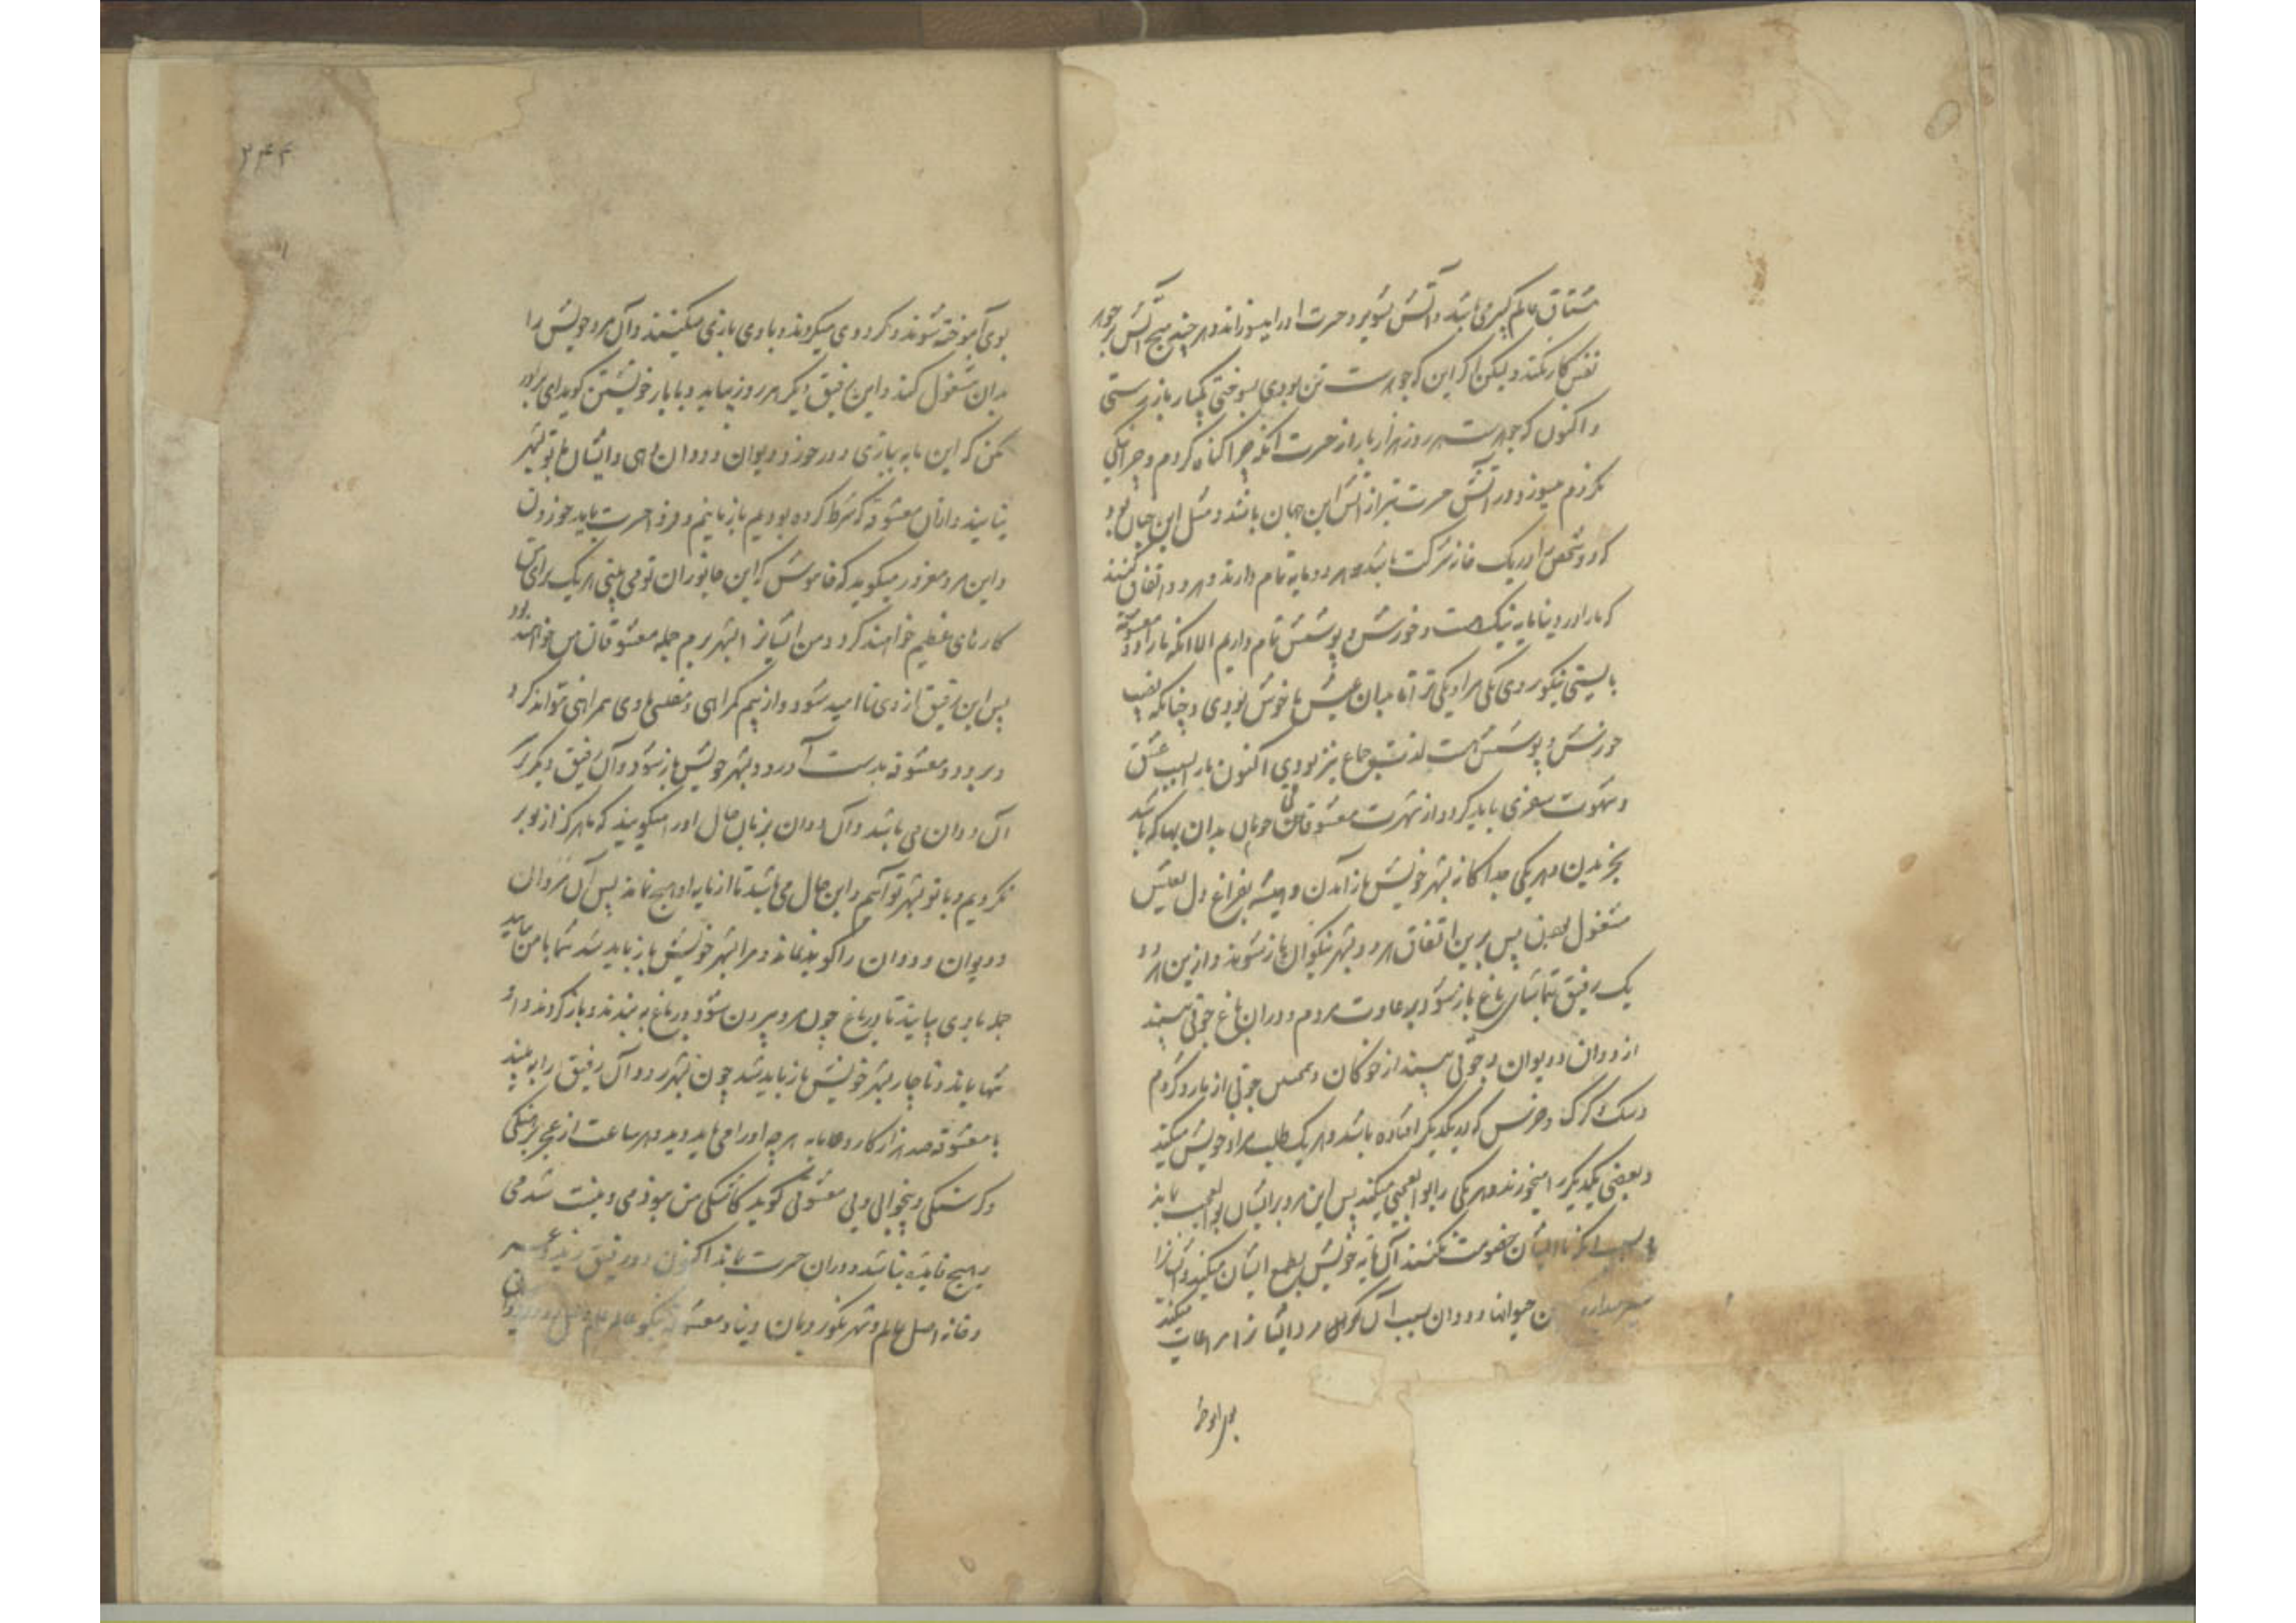 مشتاق عالم کبری باشد و آتش تشویر و حسرت او را میسوزاند و هر چند هیچ آتش بر جوهر
نفس کار نکند ولیکن اگر این که جوهرست تن بودی بسوختی یکبار باز رستی
و اکنون که جوهرست هر روز هزار بار از حسرت آنکه چرا گناه کردم و چرا نیکی
نکردم میسوزد و آتش حسرت تیزتر از آتش این جهان باشد و مثل این چنان بود
که دو شخص را در یک خانه شرکت باشد و هر دو مایه تمام دارند و هر دو اتفاق کنند
که ما را در دنیا مایه نیک هست و خورش و پوشش تمام داریم الا آنکه ما را دو معشوقه
بایستی نیکو روی یکی مرا و یکی ترا تا میان عیش ما خوش بودی و چنانکه نصیب
خورش و پوشش هست لذت جماع نیز بودی اکنون ما را بسبب عشق
و شهوت سفری باید کرد و از شهرت معشوقان خوبان بدان بها که باشد
بخریدن و هر یکی جداگانه بشهر خویش باز آمدن و همیشه بفراغ دل بعیش
مشغول بودن پس برین اتفاق هر دو بشهر نیکوان باز شوند و ازین هر دو
یک رفیق بتماشای باغ باز شود بر عادت مردم و در آن باغ جوقی بیند
از ددان و دیوان و جوقی بیند از خوکان و جوقی از مار و کژدم
و سگ و گرگ و خرس که بر یکدیگر افتاده باشد و هر یک طلب مراد خویش میکند
و بعضی یکدیگر را میخورند و هر یکی را بوالعجبی میکند پس این مرد بر ایشان بوالعجب بماند
و بسبب آنکه تا ایشان خصومت نکنند آن مایه خویش بطمع ایشان میکند و ایشانرا
حیوانها و ددان بسبب آن مرد ایشانرا مراعات میکند
۲۴۴
بوی آموخته شوند و گرد وی میگردند و با وی بازی میکنند و آن مرد خویش را
بدان مشغول کند و این رفیق دیگر هر روز بیاید و با یار خویشتن گوید ای برادر
مکن که این مایه ببازی در خورد دیوان و ددان دهی و ایشان با تو بشهر
نیایند و از آن معشوقه که شرط کرده بودیم باز مانیم و فردا حسرت باید خوردن
و این مرد مغرور میگوید که خاموش که این جانوران تو می بینی هر یک برای من
کارهای عظیم خواهند کرد و من ایشانرا بشهر برم جمله معشوقان من خواهند بود
پس این رفیق از وی ناامید شود و از بیم گمراهی و مفلسی با وی همراهی نتواند کرد
و برود و معشوقه بدست آورد و بشهر خویش باز شود و آن رفیق دیگر گرد
آن ددان می باشد و آن ددان بزبان حال او را میگویند که ما هرگز از تو بر
نگردیم و با تو بشهر تو آییم و این حال می باشد تا از مایه او هیچ نماند پس آن مرد آن
دیوان و ددان را گوید نماند و مرا بشهر خویش باز باید شد شما با من بیایید
جمله با وی بیایند تا در باغ چون مرد بیرون شود در باغ ببندند و باز گردند و او
تنها بماند و ناچار بشهر خویش باز باید شد چون بشهر رود آن رفیق را بیند
با معشوقه صد هزار کار و هر چه او را می باید و هر ساعت از عجز برهنگی
و گرسنگی و بیخوابی و بی معشوقی گوید کاشکی من نبودمی و نیست شدمی
و هیچ فایده نباشد و در آن حسرت بماند اکنون دو رفیق
و خانه اصل عالم و شهر نکورویان دنیا و معشوقه نیکو عالم علم و عمل